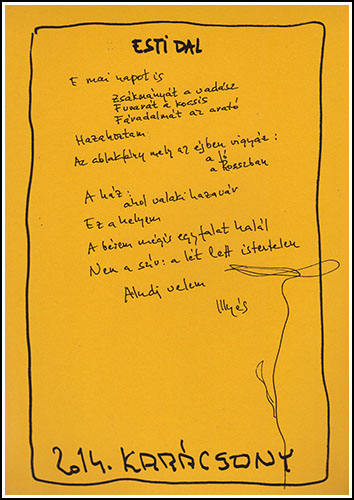 ESTI DAL
E mai napot is
Zsákmányát a vadász
Fuvarát a kocsis
Fáradalmát az arató
Hazahoztam
Az ablakfény mely az éjben vigyáz:
a Jó
a Rosszban
A ház:
ahol valaki hazavár
Ez a helyem
A bérem mégis egy falat halál
Nem a szív: a lét lett istentelen
Aludj velem
Illyés
2014. KARÁCSONY